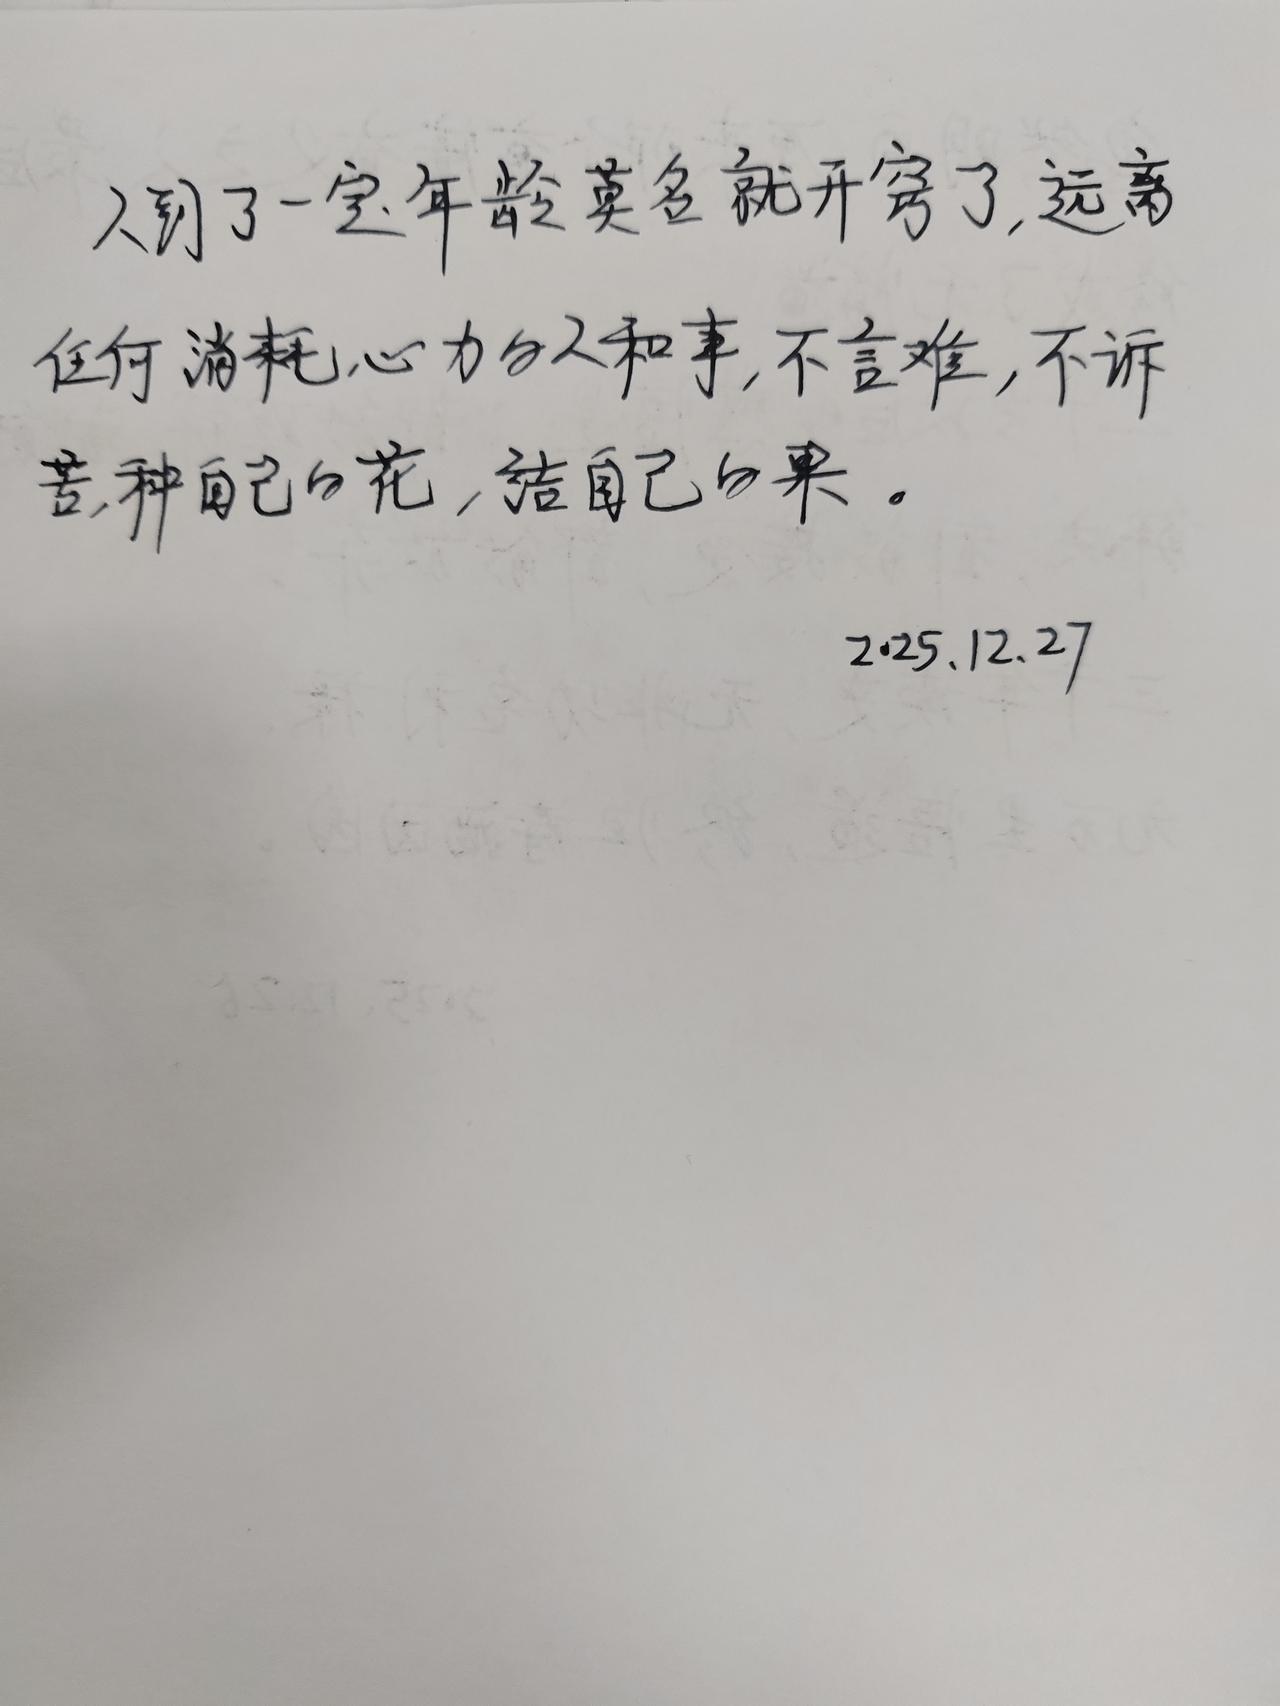 人到了一定年龄莫名就开窍了,远离
任何消耗心力的人和事,不言难,不诉
苦,种自己的花,结自己的果。
2025.12.27